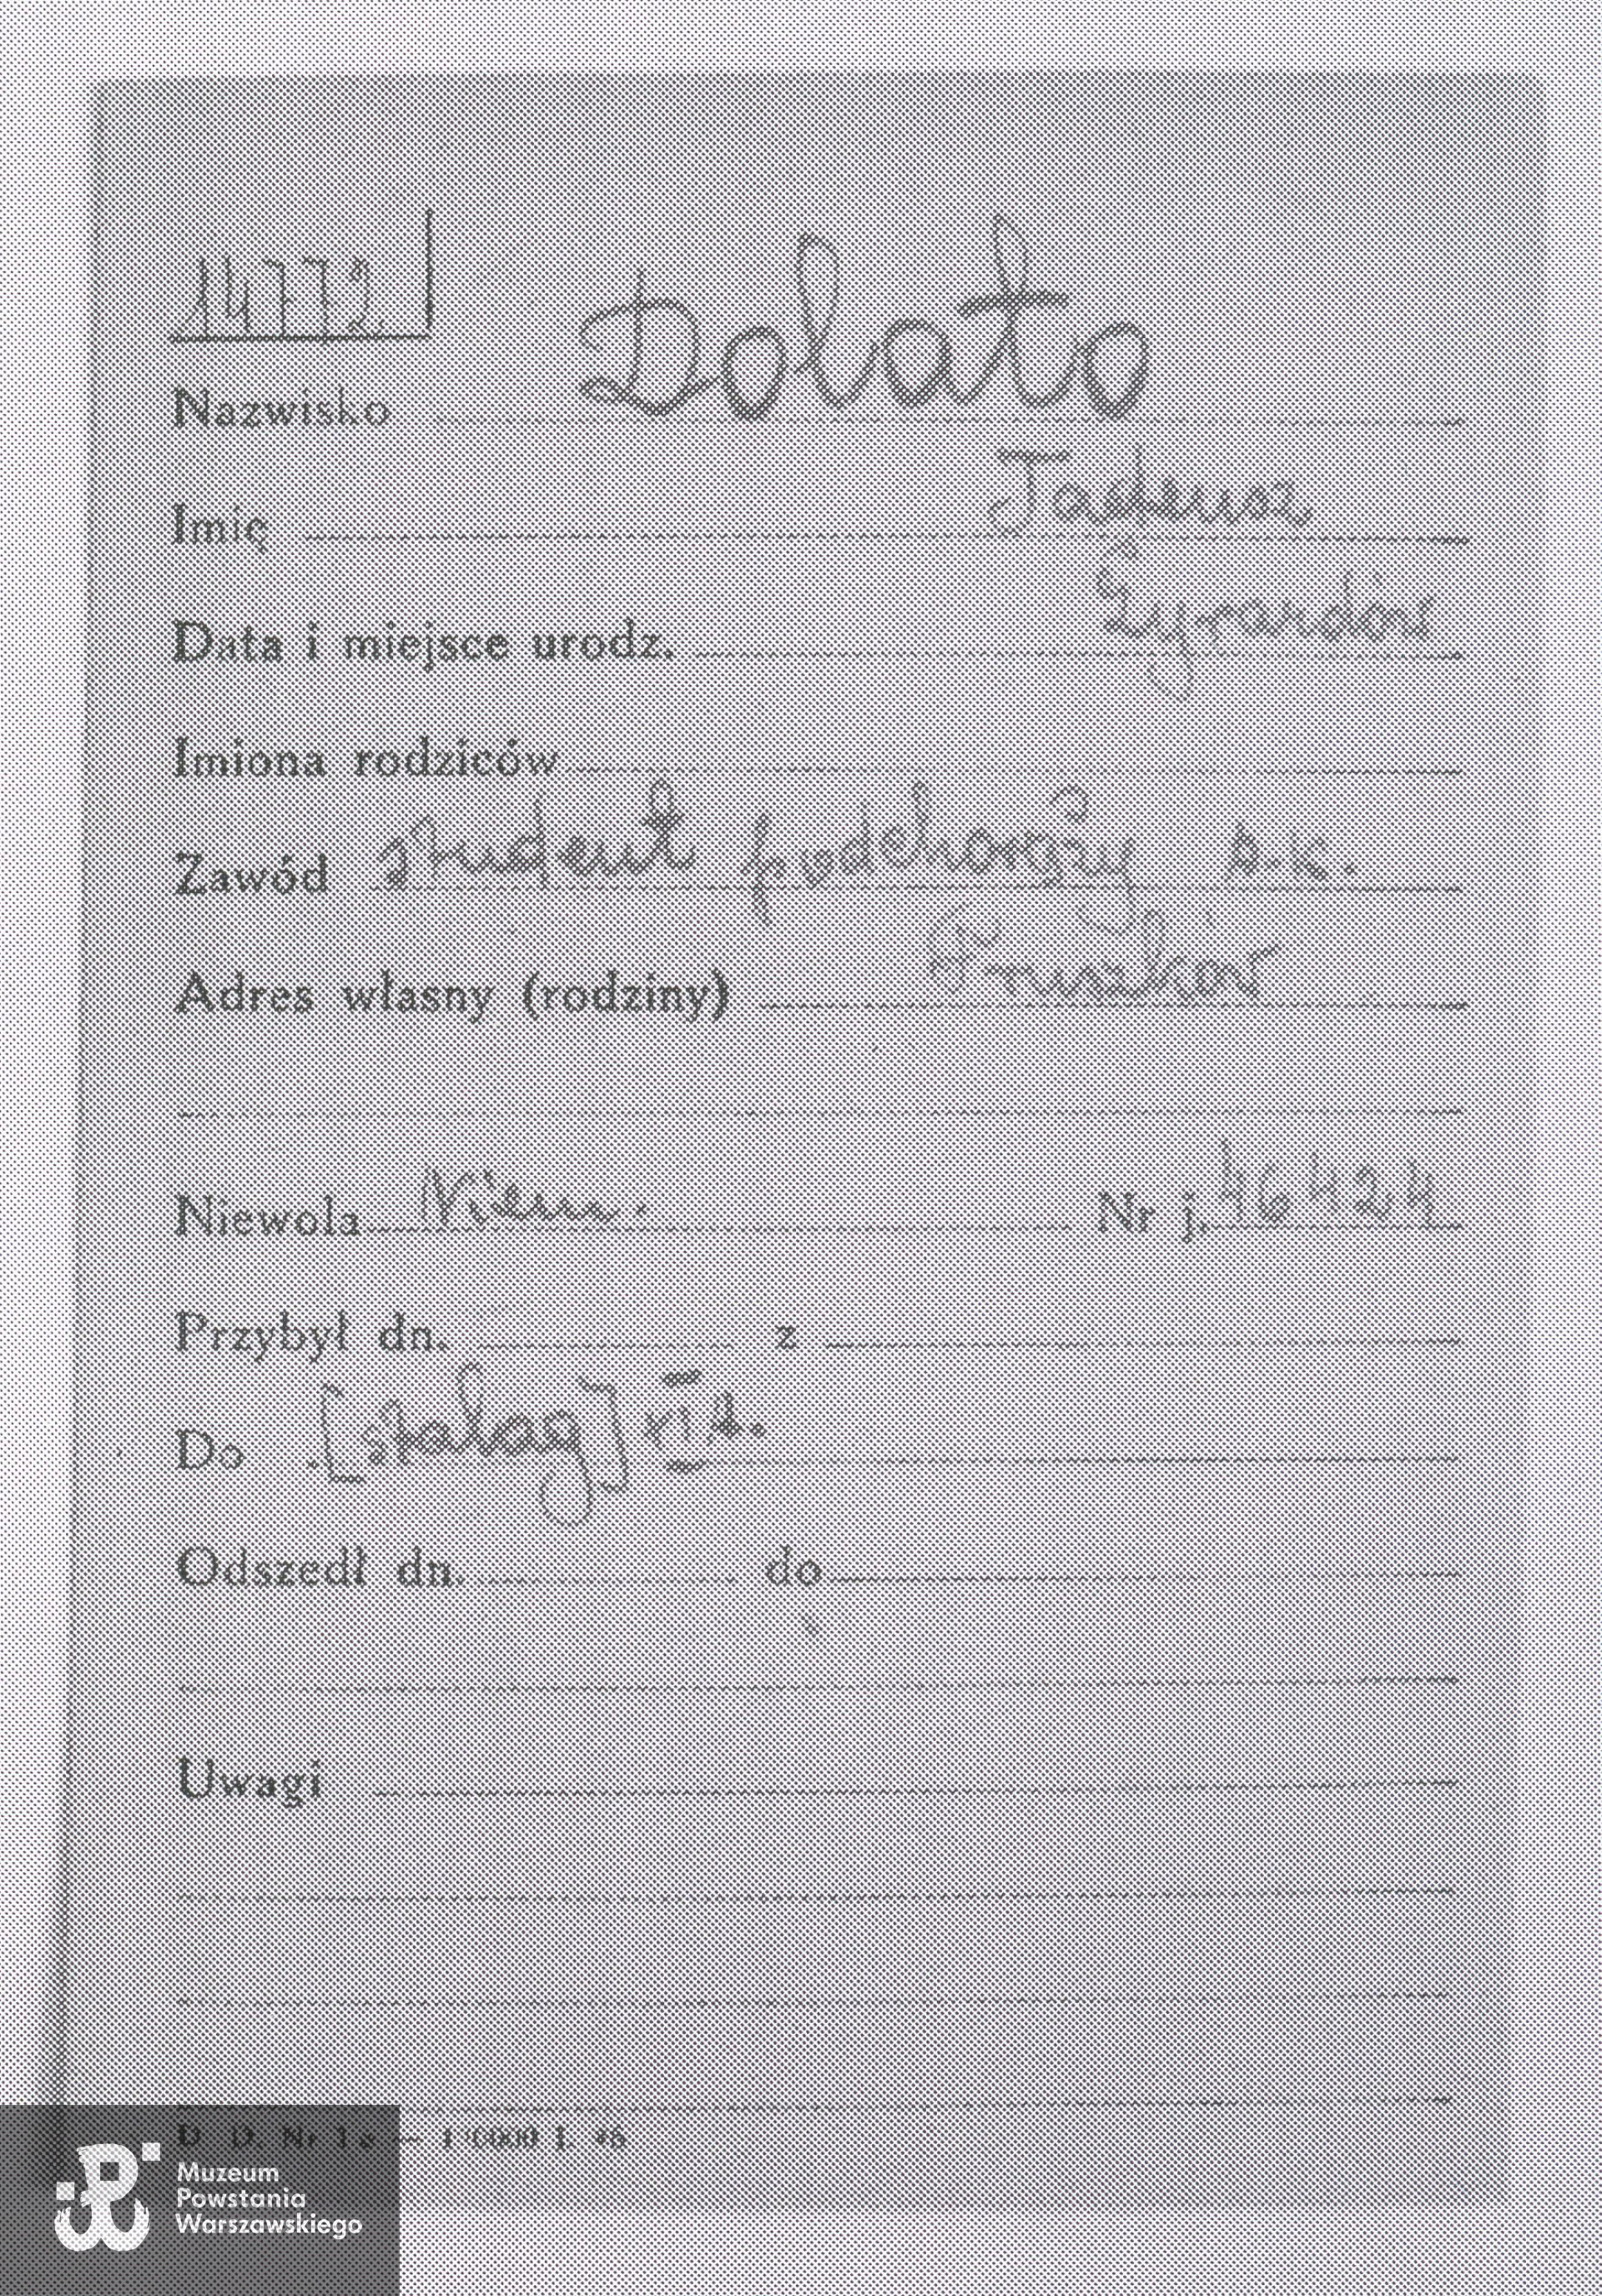 14772
Dolato
Nazwisko
Imię Tadeusz
Data i miejsce urodz. Żyrardów
Imiona rodziców
Zawód student podchorąży A.K.
Adres własny (rodziny) Pruszków
Niewola Niem. Nr j. 46424
Przybył dn. z
Do [stalag] XI A.
Odszedł dn. do
Uwagi
D. D. Nr
Muzeum
Powstania
Warszawskiego